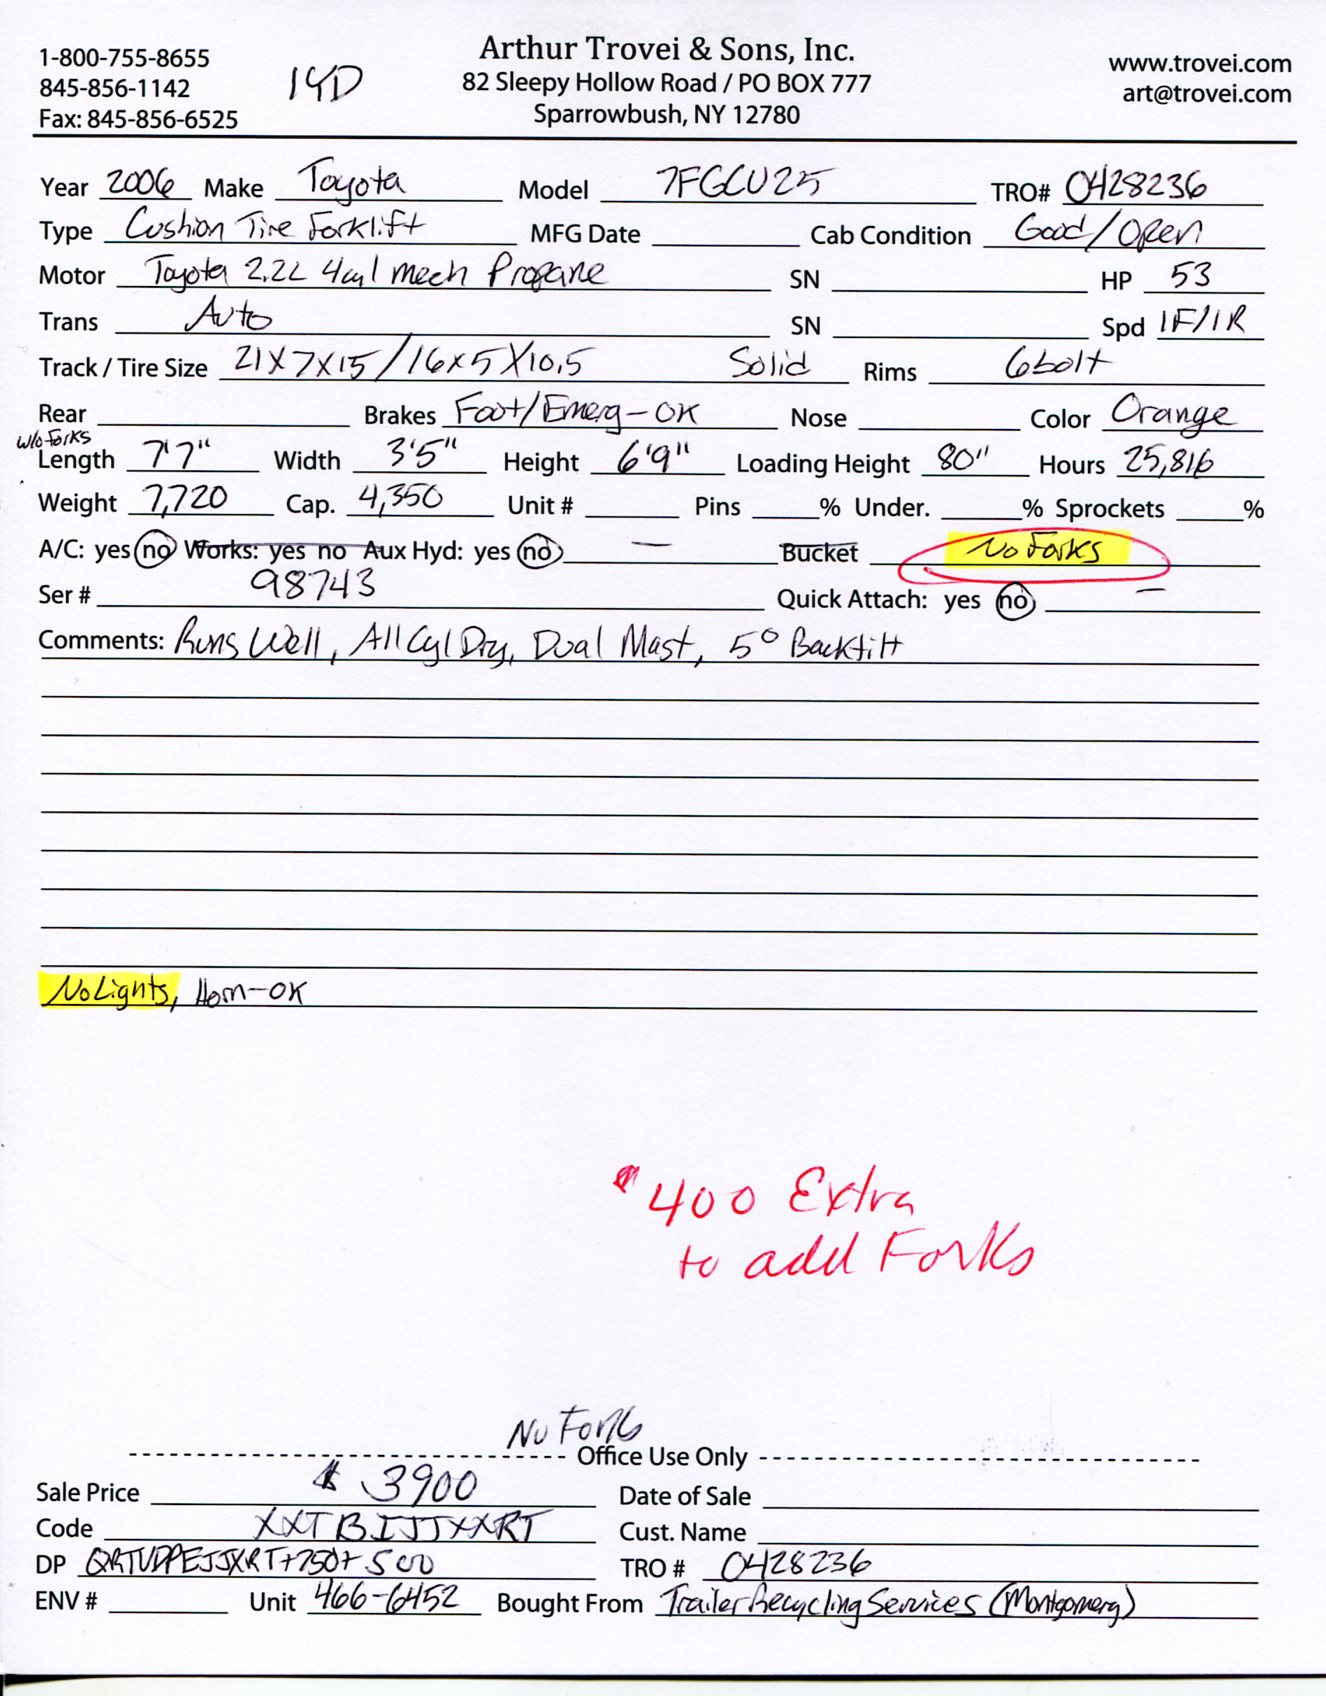 Arthur Trovei & Sons, Inc.
82 Sleepy Hollow Road / PO BOX 777
Sparrowbush, NY 12780
1-800-755-8655
845-856-1142
Fax: 845-856-6525
14D
www.trovei.com
art@trovei.com
Year 2006 Make Toyota Model 7FGCU25 TRO# 0428236
Type Cushion Tire Forklift MFG Date Cab Condition Good/Open
Motor Toyota 2.2L 4cyl mech Propane SN HP 53
Trans Auto SN Spd 1F/1R
Track / Tire Size 21X7X15/16X5X10.5 Solid Rims 6bolt
Rear Brakes Foot/Emerg-OK Nose Color Orange
w/o Forks
Length 7'7" Width 3'5" Height 6'9" Loading Height 80" Hours 25,816
Weight 7,720 Cap. 4,350 Unit # Pins % Under. % Sprockets %
A/C: yes no Works: yes no Aux Hyd: yes no — Bucket No Forks
Ser # 98743 Quick Attach: yes no —
Comments: Runs Well, All Cyl Dry, Dual Mast, 5° Backtilt
No Lights, Horn-OK
$400 Extra
to add Forks
No Forks
Office Use Only
Sale Price $3900 Date of Sale
Code XXTBIJJXXRT Cust. Name
DP QRTUDPEJJXRT+750+500 TRO # 0428236
ENV # Unit 466-6452 Bought From Trailer Recycling Services (Montgomery)